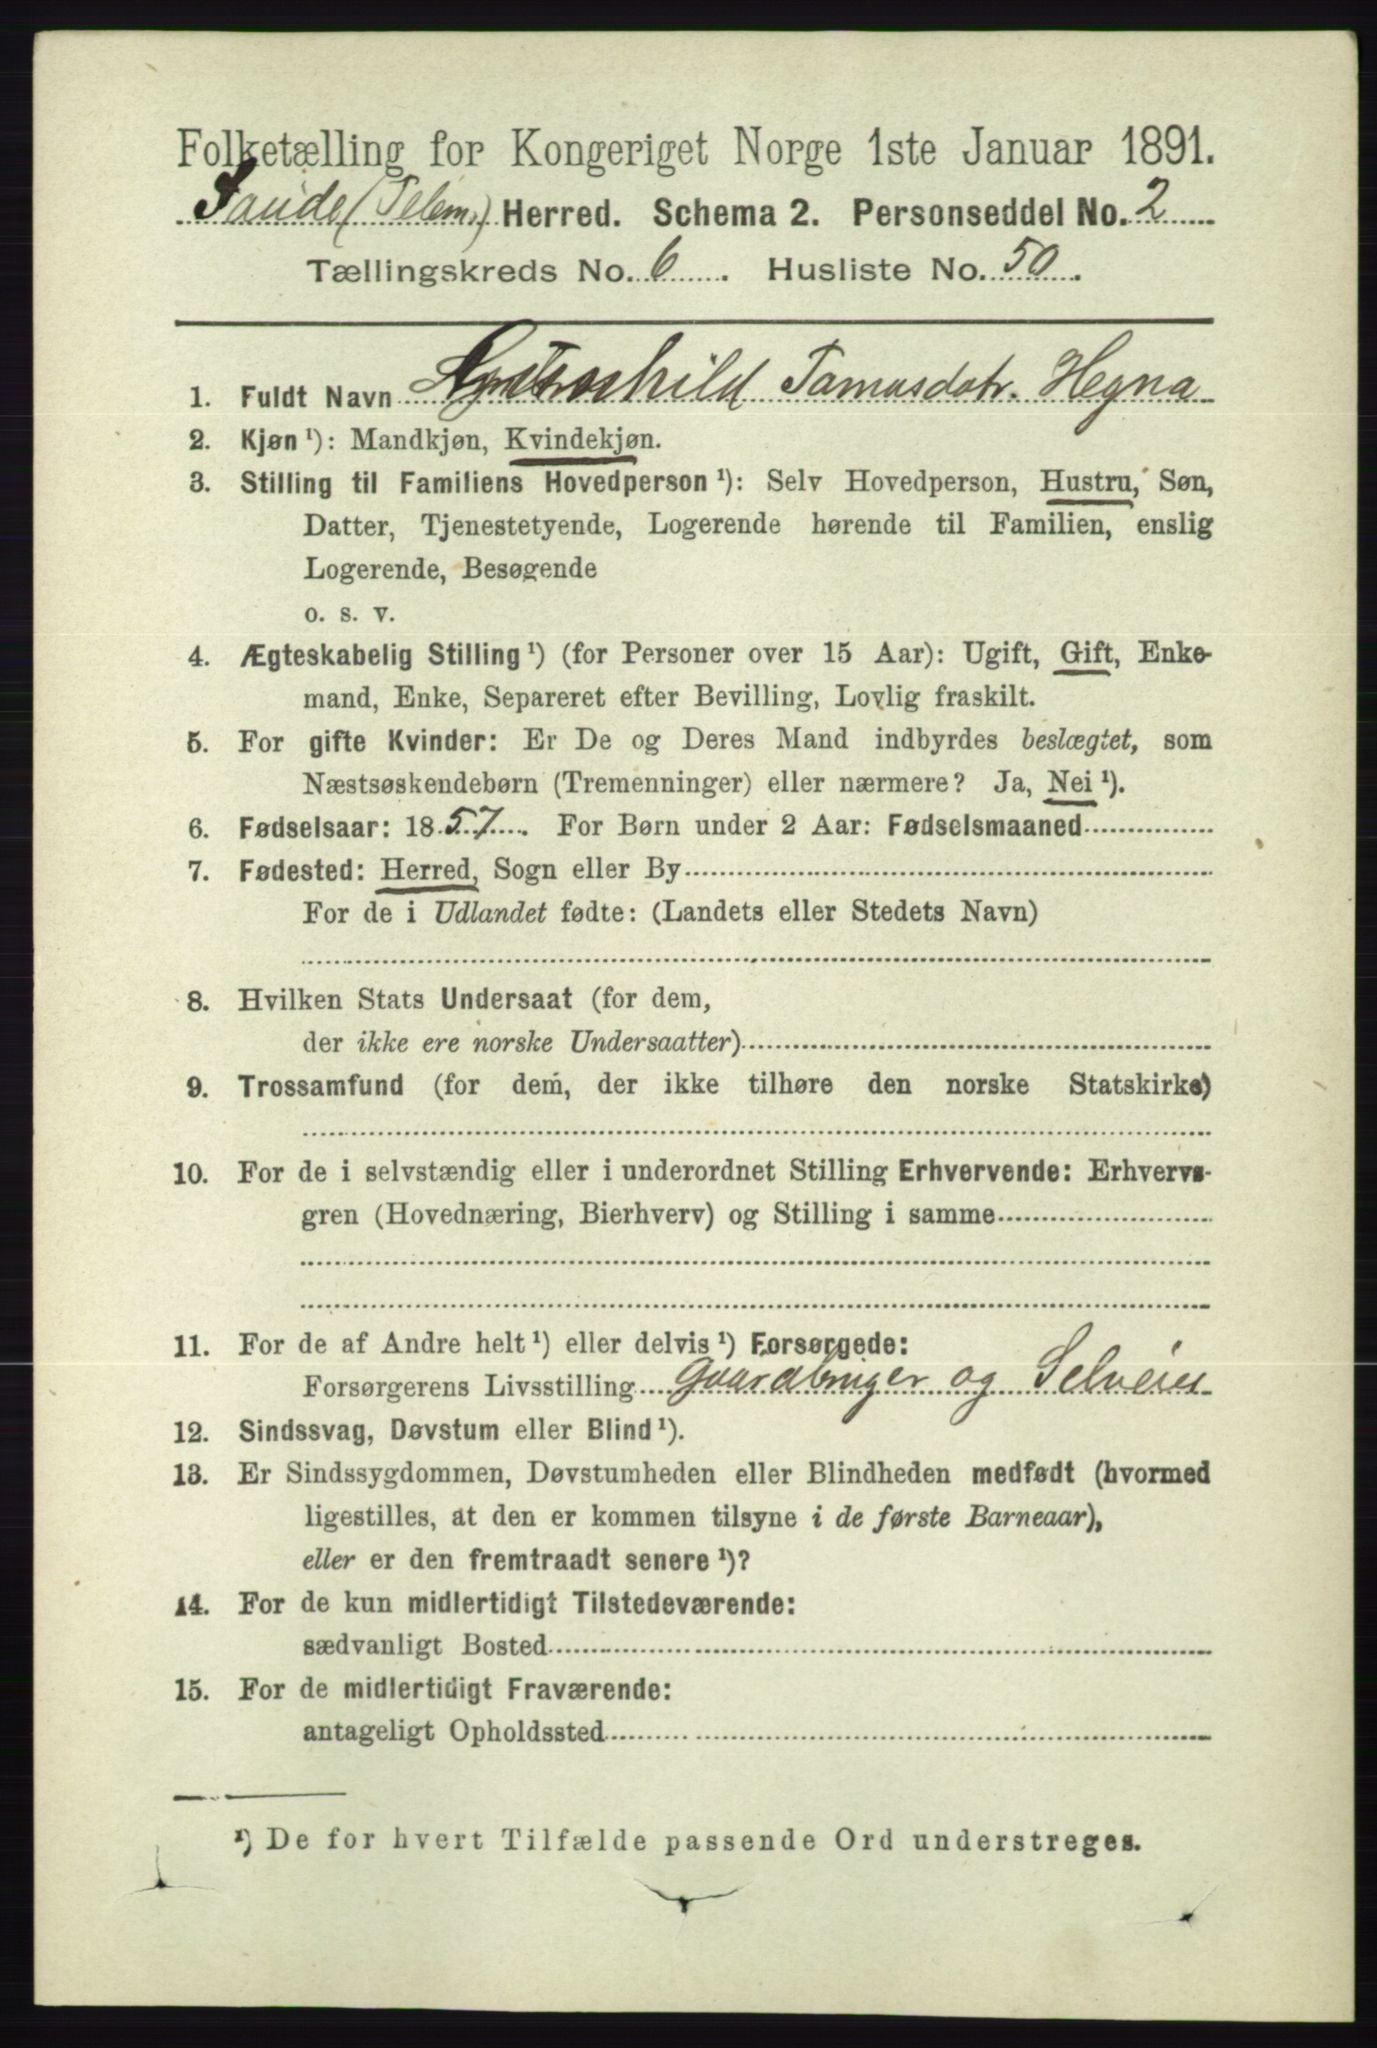 Folketælling for Kongeriget Norge 1ste Januar 1891.
Saude (Telem.) Herred. Schema 2. Personseddel No. 2
Tællingskreds No. 6. Husliste No. 50.
1. Fuldt Navn Tamasdotr. Hegna
2. Kjøn ¹): Mandkjøn, Kvindekjøn.
3. Stilling til Familiens Hovedperson ¹): Selv Hovedperson, Hustru, Søn,
Datter, Tjenestetyende, Logerende hørende til Familien, enslig
Logerende, Besøgende
o. s. v.
4. Ægteskabelig Stilling ¹) (for Personer over 15 Aar): Ugift, Gift, Enke-
mand, Enke, Separeret efter Bevilling, Lovlig fraskilt.
5. For gifte Kvinder: Er De og Deres Mand indbyrdes beslægtet, som
Næstsøskendebørn (Tremenninger) eller nærmere? Ja, Nei ¹).
6. Fødselsaar: 1857. For Børn under 2 Aar: Fødselsmaaned
7. Fødested: Herred, Sogn eller By
For de i Udlandet fødte: (Landets eller Stedets Navn)
8. Hvilken Stats Undersaat (for dem,
der ikke ere norske Undersaatter)
9. Trossamfund (for dem, der ikke tilhøre den norske Statskirke)
10. For de i selvstændig eller i underordnet Stilling Erhvervende: Erhvervs-
gren (Hovednæring, Bierhverv) og Stilling i samme
11. For de af Andre helt ¹) eller delvis ¹) Forsørgede:
Forsørgerens Livsstilling Gaardbruger og Selveier
12. Sindssvag, Døvstum eller Blind ¹).
13. Er Sindssygdommen, Døvstumheden eller Blindheden medfødt (hvormed
ligestilles, at den er kommen tilsyne i de første Barneaar),
eller er den fremtraadt senere ¹)?
14. For de kun midlertidigt Tilstedeværende:
sædvanligt Bosted
15. For de midlertidigt Fraværende:
antageligt Opholdssted
¹) De for hvert Tilfælde passende Ord understreges.